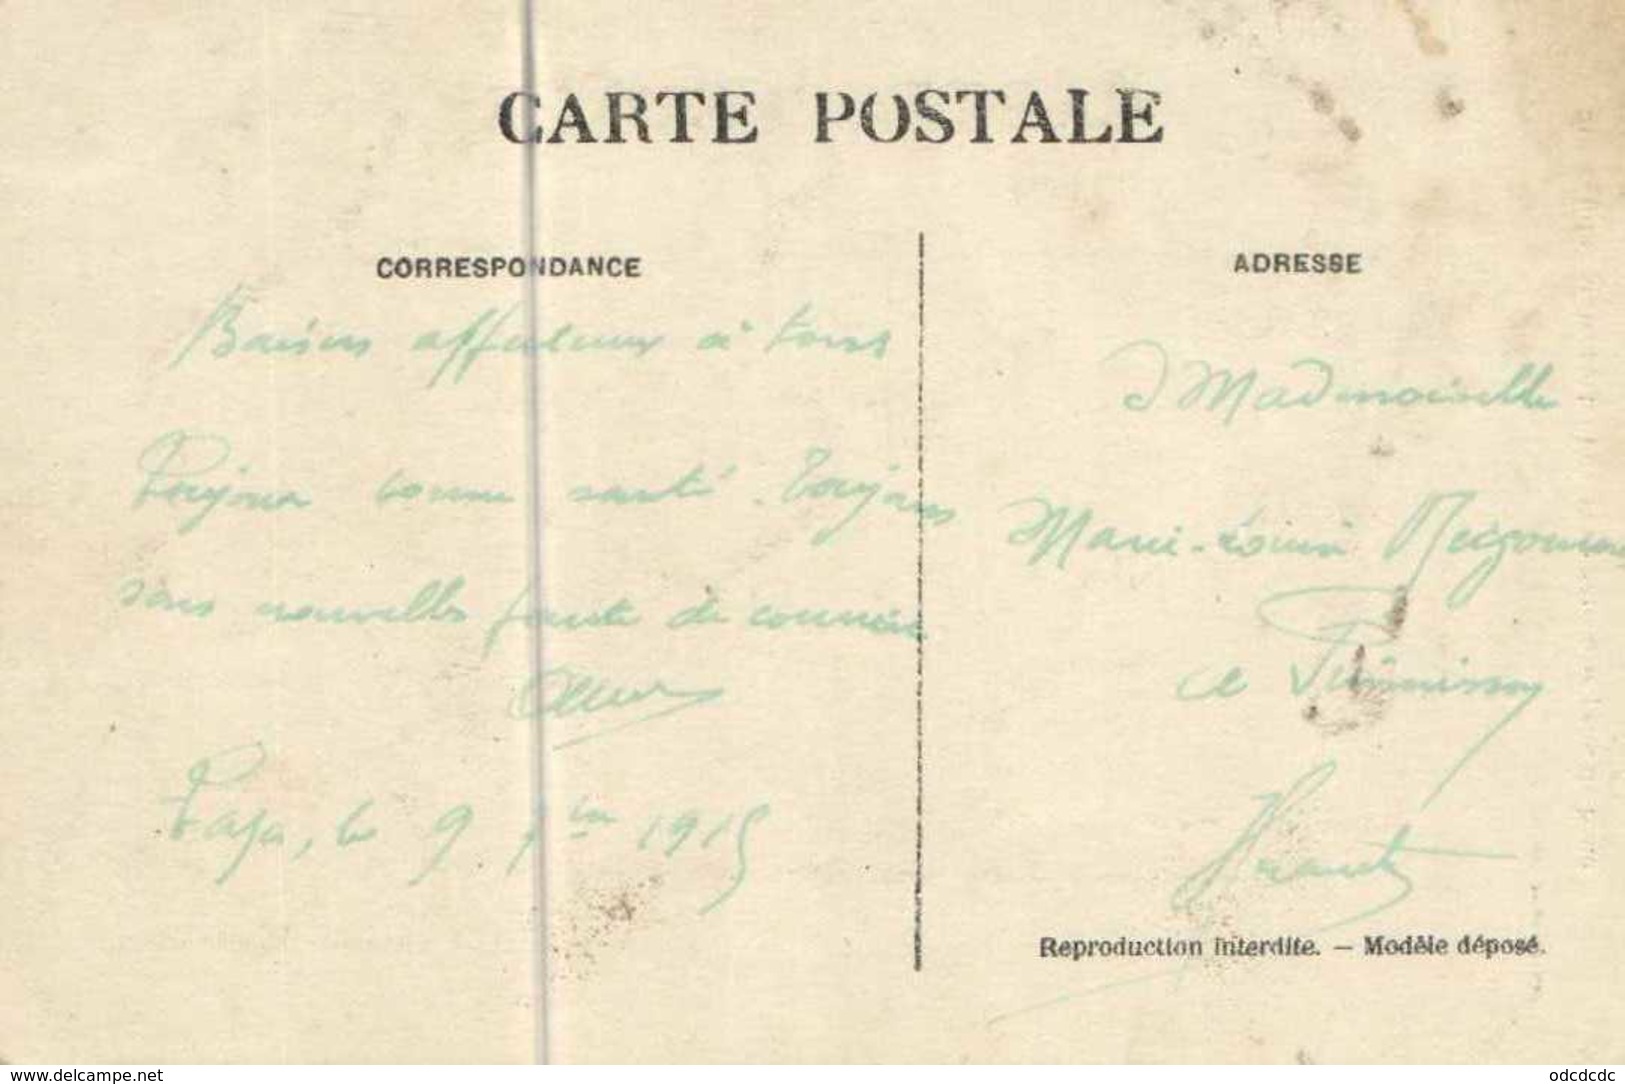 CARTE POSTALE
CORRESPONDANCE
Baisers affectueux à tous
Toujours bonne santé. Toujours
sans nouvelles faute de courrier
le 9 7bre 1915
ADRESSE
Mademoiselle
Marie-Louise
Hérault
Reproduction interdite. — Modèle déposé.
www.delcampe.net
odcdcdc